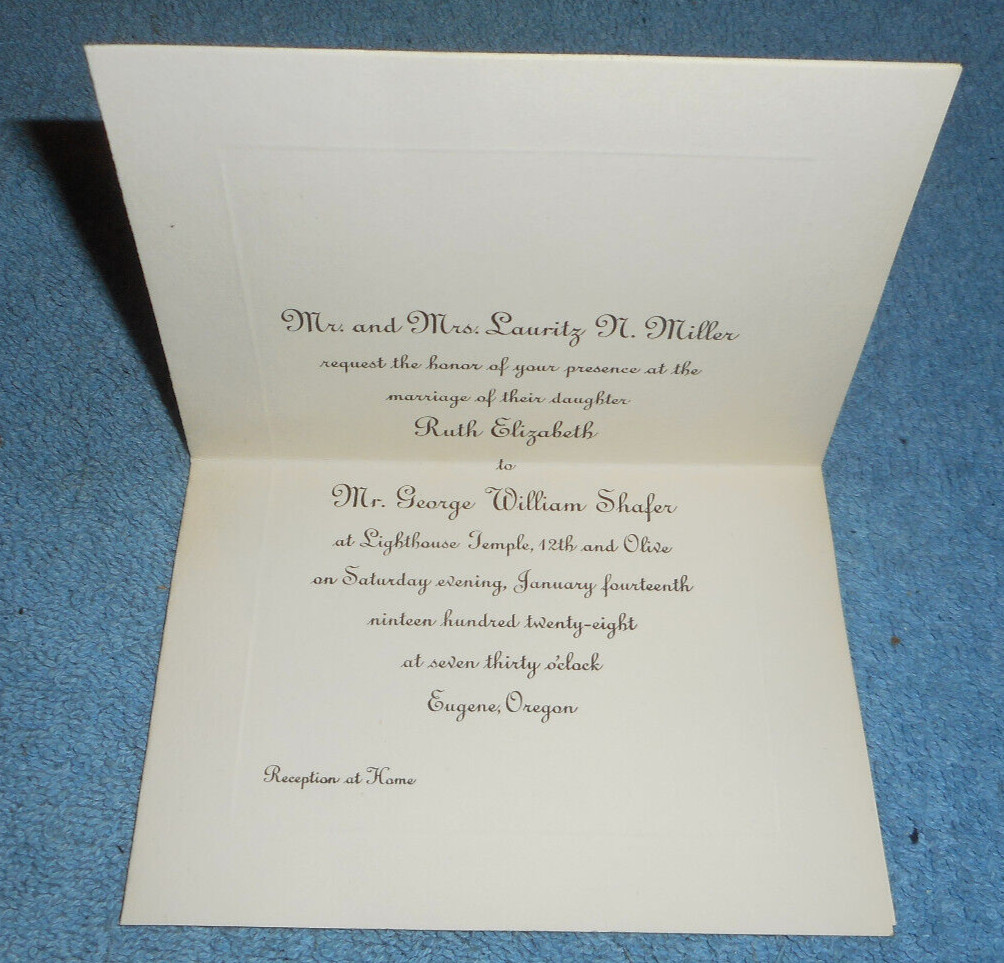 Mr. and Mrs. Lauritz N. Miller
request the honor of your presence at the
marriage of their daughter
Ruth Elizabeth
to
Mr. George William Shafer
at Lighthouse Temple, 12th and Olive
on Saturday evening, January fourteenth
ninteen hundred twenty-eight
at seven thirty o'clock
Eugene, Oregon
Reception at Home